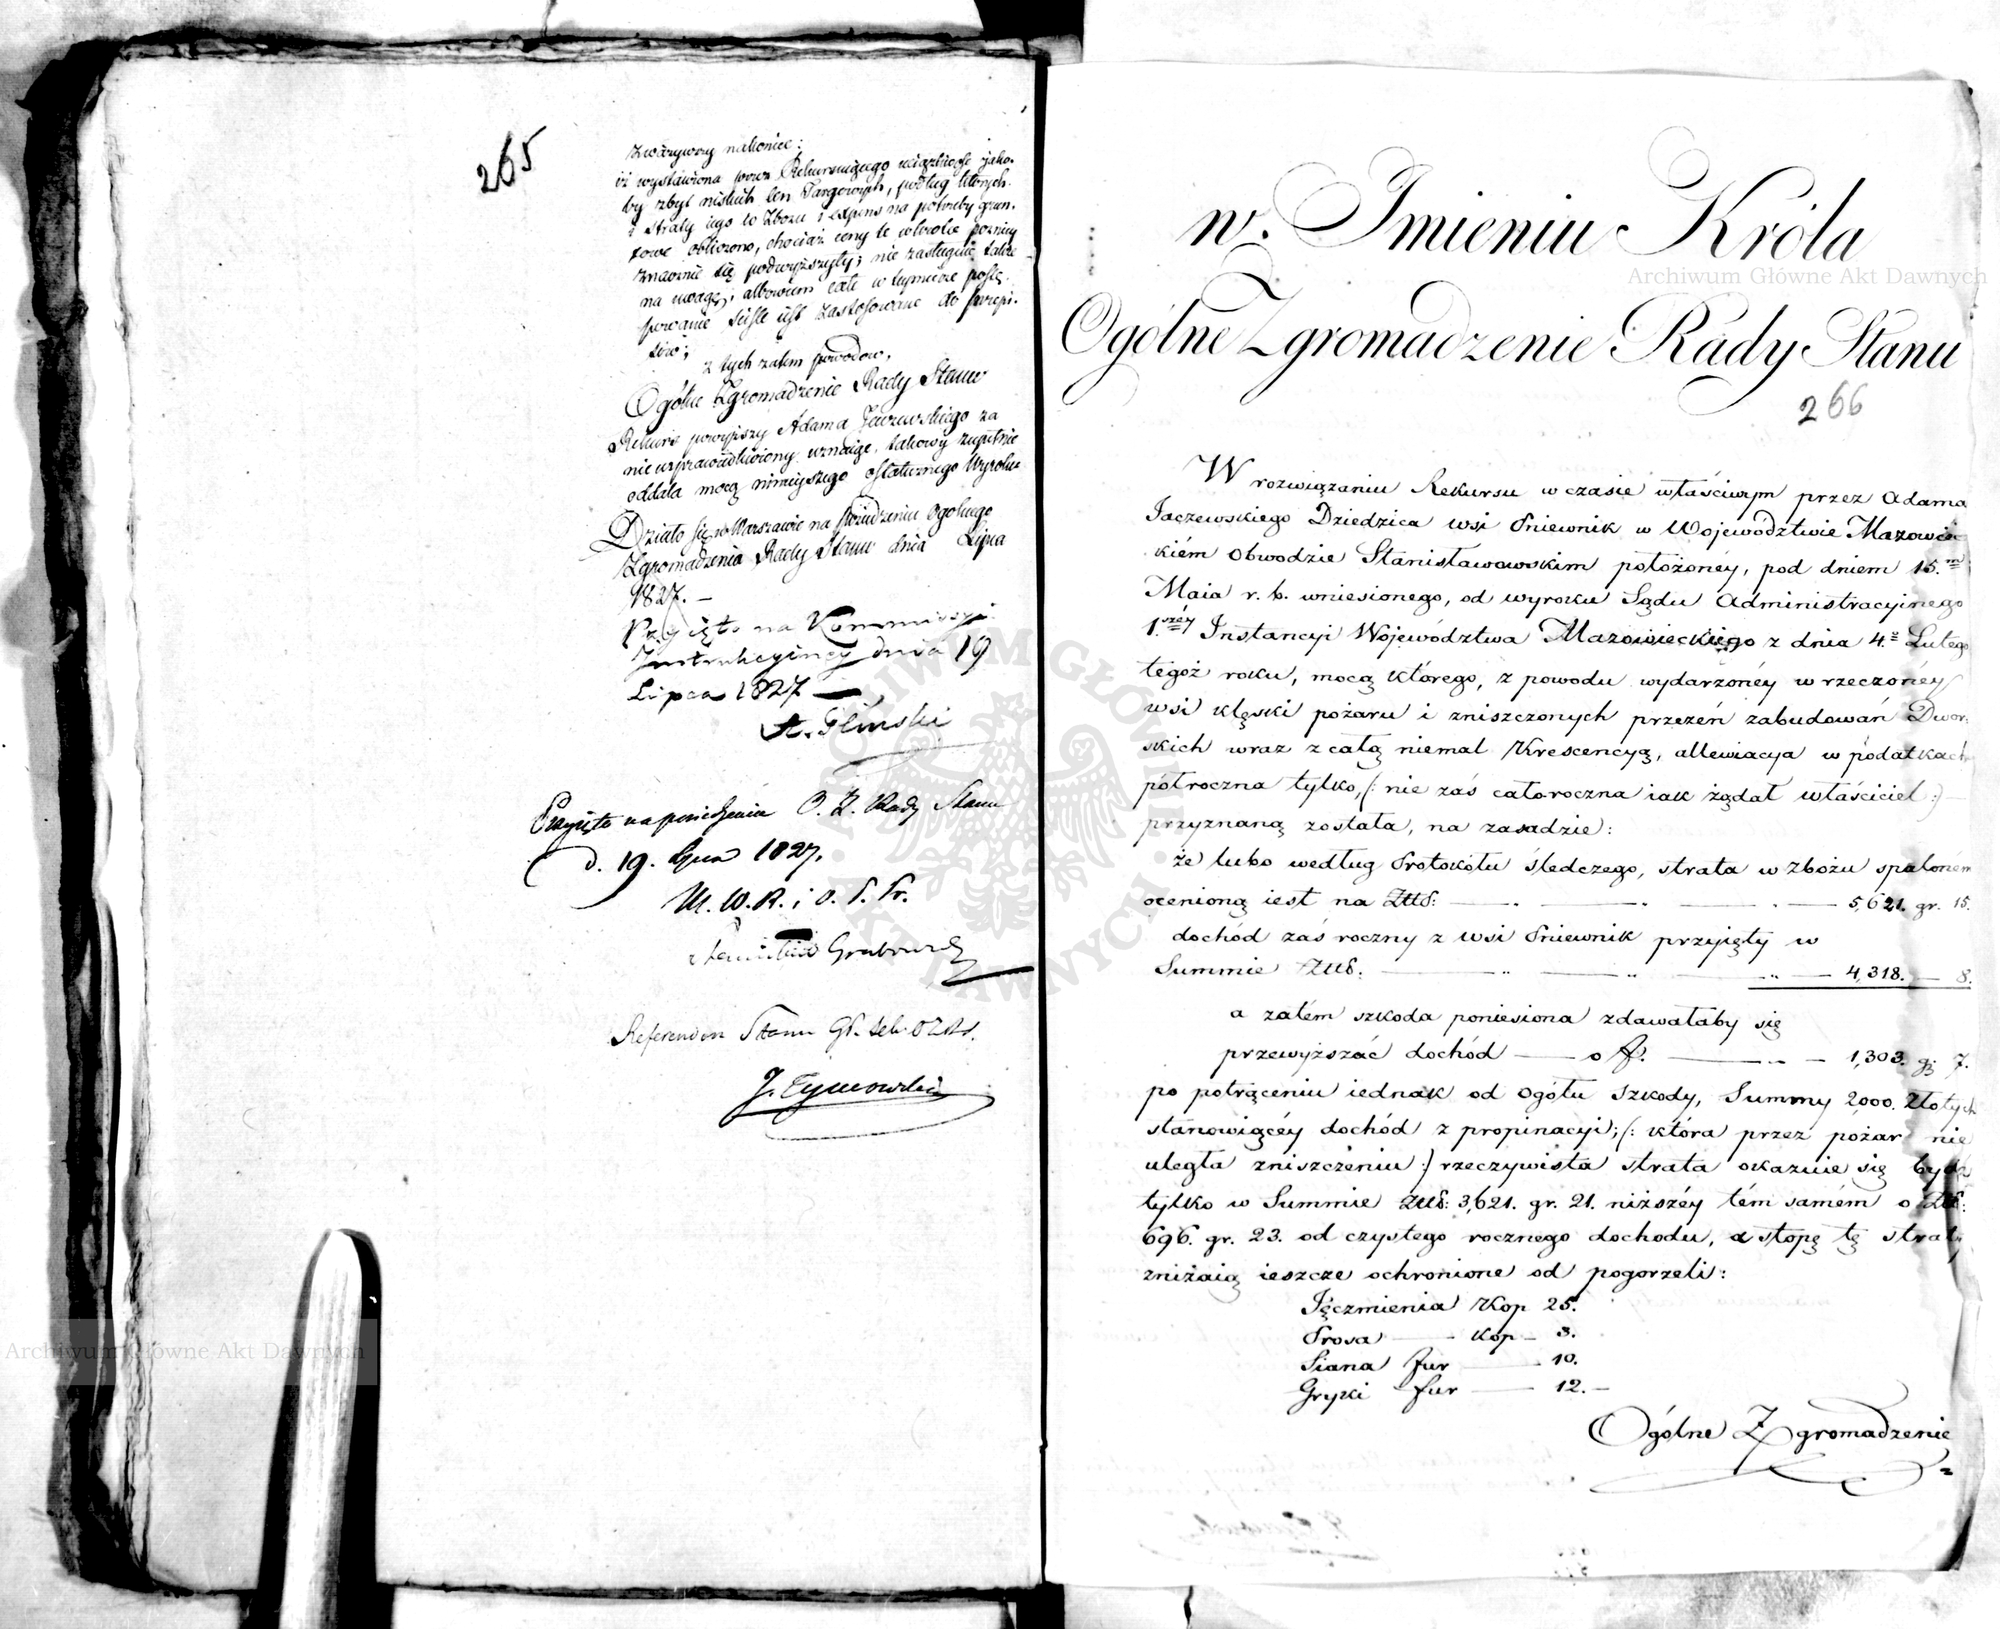 265
Zważywszy nakoniec:
iż wystawiona przez Rekurruiącego wiązkość jako-
by zbyt niskich Cen Targowych, podług których
straty iego w Zbożu i expens na potrzeby grun-
towe obliczono, chociaż ceny te wkrotce poźniey
znacznie się podwyższyły; nie zasługuie także
na uwagę; albowiem całe w tymierze postę-
powanie ściśle iest zastosowane do przepi-
sów;
z tych zatem powodów,
Ogólne Zgromadzenie Rady Stanu
Rekurs powyższy Adama Jaczewskiego za
nieusprawiedliwiony uznaie, takowy zupełnie
oddala mocą ninieyszego ostatecznego Wyroku
Działo się w Warszawie na posiedzeniu Ogolnego
Zgromadzenia Rady Stanu dnia Lipca
1827. —
Przyięto na Kommissyi
Instrukcyiney dnia 19
Lipca 1827 —
A. Gliński
Przyięto na posiedzeniu O. Z. Rady Stanu
d. 19. Lipca 1827.
M. W. R. i O. P. Pr.
Stanisław Grabowski
Referendarz Stanu
J. Tymowski
w. Imieniu Króla
Ogólne Zgromadzenie Rady Stanu
266
W rozwiązaniu Rekursu w czasie właściwym przez Adama
Jaczewskiego Dziedzica wsi Pniewnik w Województwie Mazowiec-
kiém Obwodzie Stanisławowskim położonéy, pod dniem 15.m
Maia r. b. wniesionego, od wyroku Sądu Administracyinego
1.széy Instancyi Województwa Mazowieckiego z dnia 4.o Lutego
tegoż roku, mocą którego, z powodu wydarzonéy w rzeczonéy
wsi klęski pożaru i zniszczonych przezeń zabudowań Dwor-
skich wraz z całą niemal Krescencyą, allewiacya w podatkach
półroczna tylko, (: nie zaś całoroczna iak żądał właściciel :) —
przyznaną została, na zasadzie:
że lubo według Protokółu śledczego, strata w zbożu spaloném
ocenioną iest na Złłb: — — — 5,621. gr. 15.
dochód zaś roczny z wsi Pniewnik przyięty w
Summie Złłb: — — — 4,318. — 8.
a zatém szkoda poniesiona zdawałaby się
przewyższać dochód — o f. — — 1,303. g: 7.
po potrąceniu iednak od Ogółu Szkody, Summy 2000. Złotych
stanowiącéy dochód z propinacyi; (: która przez pożar nie
uległa zniszczeniu :) rzeczywista strata okazuie się bydź
tylko w Summie Złłb: 3,621. gr. 21. niższéy tém samém o Złb:
696. gr. 23. od czystego rocznego dochodu, a stopę tę straty
zniżaią ieszcze ochronione od pogorzeli:
Jęczmienia Kop 25.
Prosa — Kop — 3.
Siana fur — 10.
Gryki fur — 12. —
Ogólne Zgromadzenie
Archiwum Główne Akt Dawnych
Archiwum Główne Akt Dawnych
ARCHIWUM GŁÓWNE AKT DAWNYCH